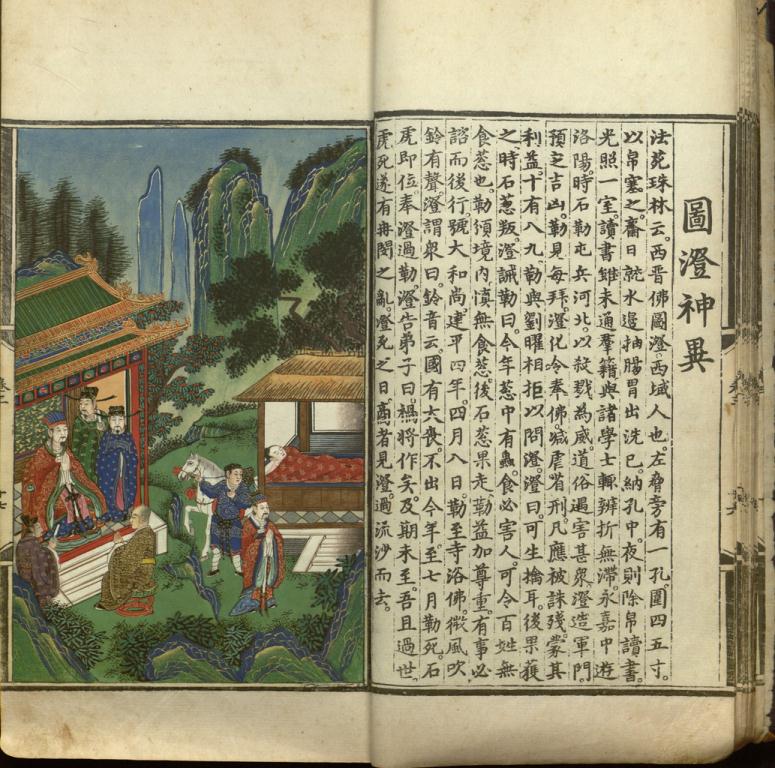 圖澄神異
法苑珠林云。西晉佛圖澄。西域人也。左脅旁有一孔。圍四五寸。
以帛塞之。齋日就水邊抽腸胃出洗已。納孔中。夜則除帛讀書。
光照一室。讀書雖未通羣籍。與諸學士輒辨析無滯。永嘉中遊
洛陽。時石勒屯兵河北。以殺戮為威。道俗遇害甚眾。澄造軍門。
預定吉凶。勒見每拜。澄化令奉佛。減虐省刑。凡應被誅殘。蒙其
利益。十有八九。勒與劉曜相拒。以問澄。澄曰。可生擒耳。後果獲
之。時石蔥叛。澄誡勒曰。今年蔥中有蟲。食必害人。可令百姓無
食蔥也。勒領境內慎無食蔥。後石蔥果走。勒益加尊重。有事必
諮而後行。號大和尚。建平四年。四月八日。勒至寺浴佛。微風吹
鈴有聲。澄謂眾曰。鈴音云。國有大喪。不出今年。至七月勒死。石
虎即位。奉澄過勒。澄告弟子曰。禍將作矣。及期未至。吾且過世。
虎死遂有冉閔之亂。澄死之日。商者見澄。過流沙而去。